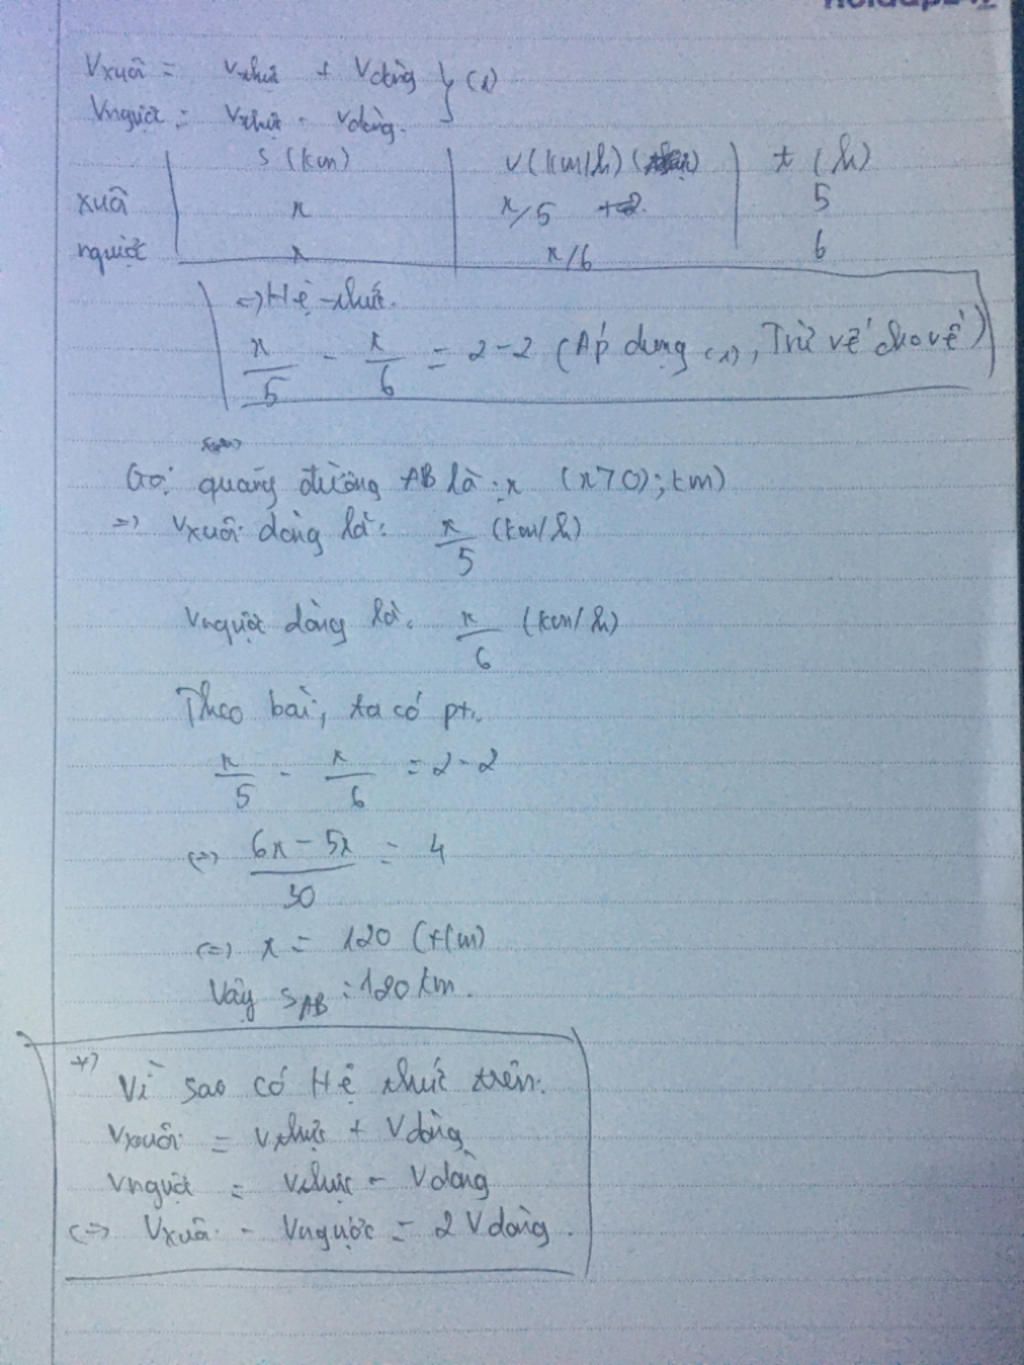 Vxuôi = Vthực + Vdòng } (1)
Vngược = Vthực - Vdòng.
S (km) V (km/h) t (h)
xuôi x x/5 +2 5
ngược x x/6 6
=> Hệ thức.
x/5 - x/6 = 2-2 (Áp dụng (1), Trừ vế cho vế)
Gọi quãng đường AB là: x (x>0); km)
=> Vxuôi dòng là: x/5 (km/h)
Vngược dòng là: x/6 (km/h)
Theo bài, ta có pt:
x/5 - x/6 = 2-2
<=> 6x - 5x/30 = 4
<=> x = 120 (t/m)
Vậy SAB = 120 km.
*) Vì sao có Hệ thức trên:
Vxuôi = Vthực + Vdòng
Vngược = Vthực - Vdòng
<=> Vxuôi - Vngược = 2 Vdòng.